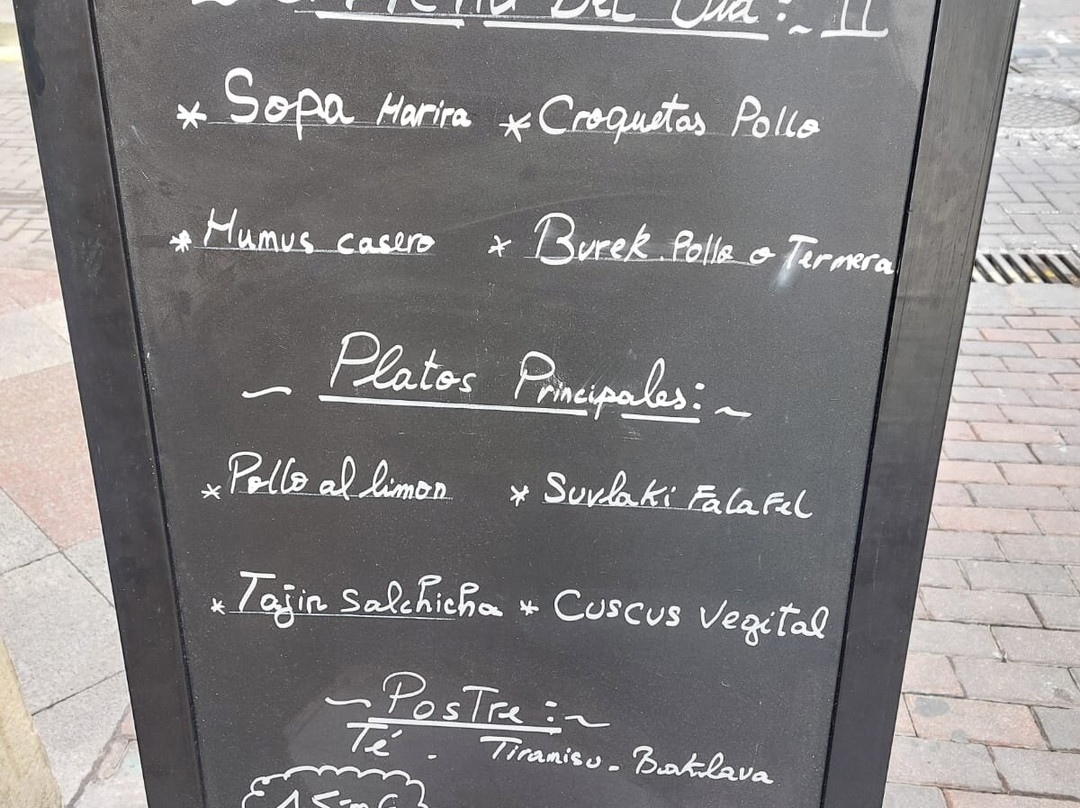 Menú Del Día:~ II
* Sopa Harira * Croquetas Pollo
* Humus casero * Burek. Pollo o Termera
~ Platos Principales: ~
* Pollo al limon * Suvlaki Falafel
* Tajin salchicha * Cuscus Vegital
~ Postre: ~
Té . Tiramisu. Baklava